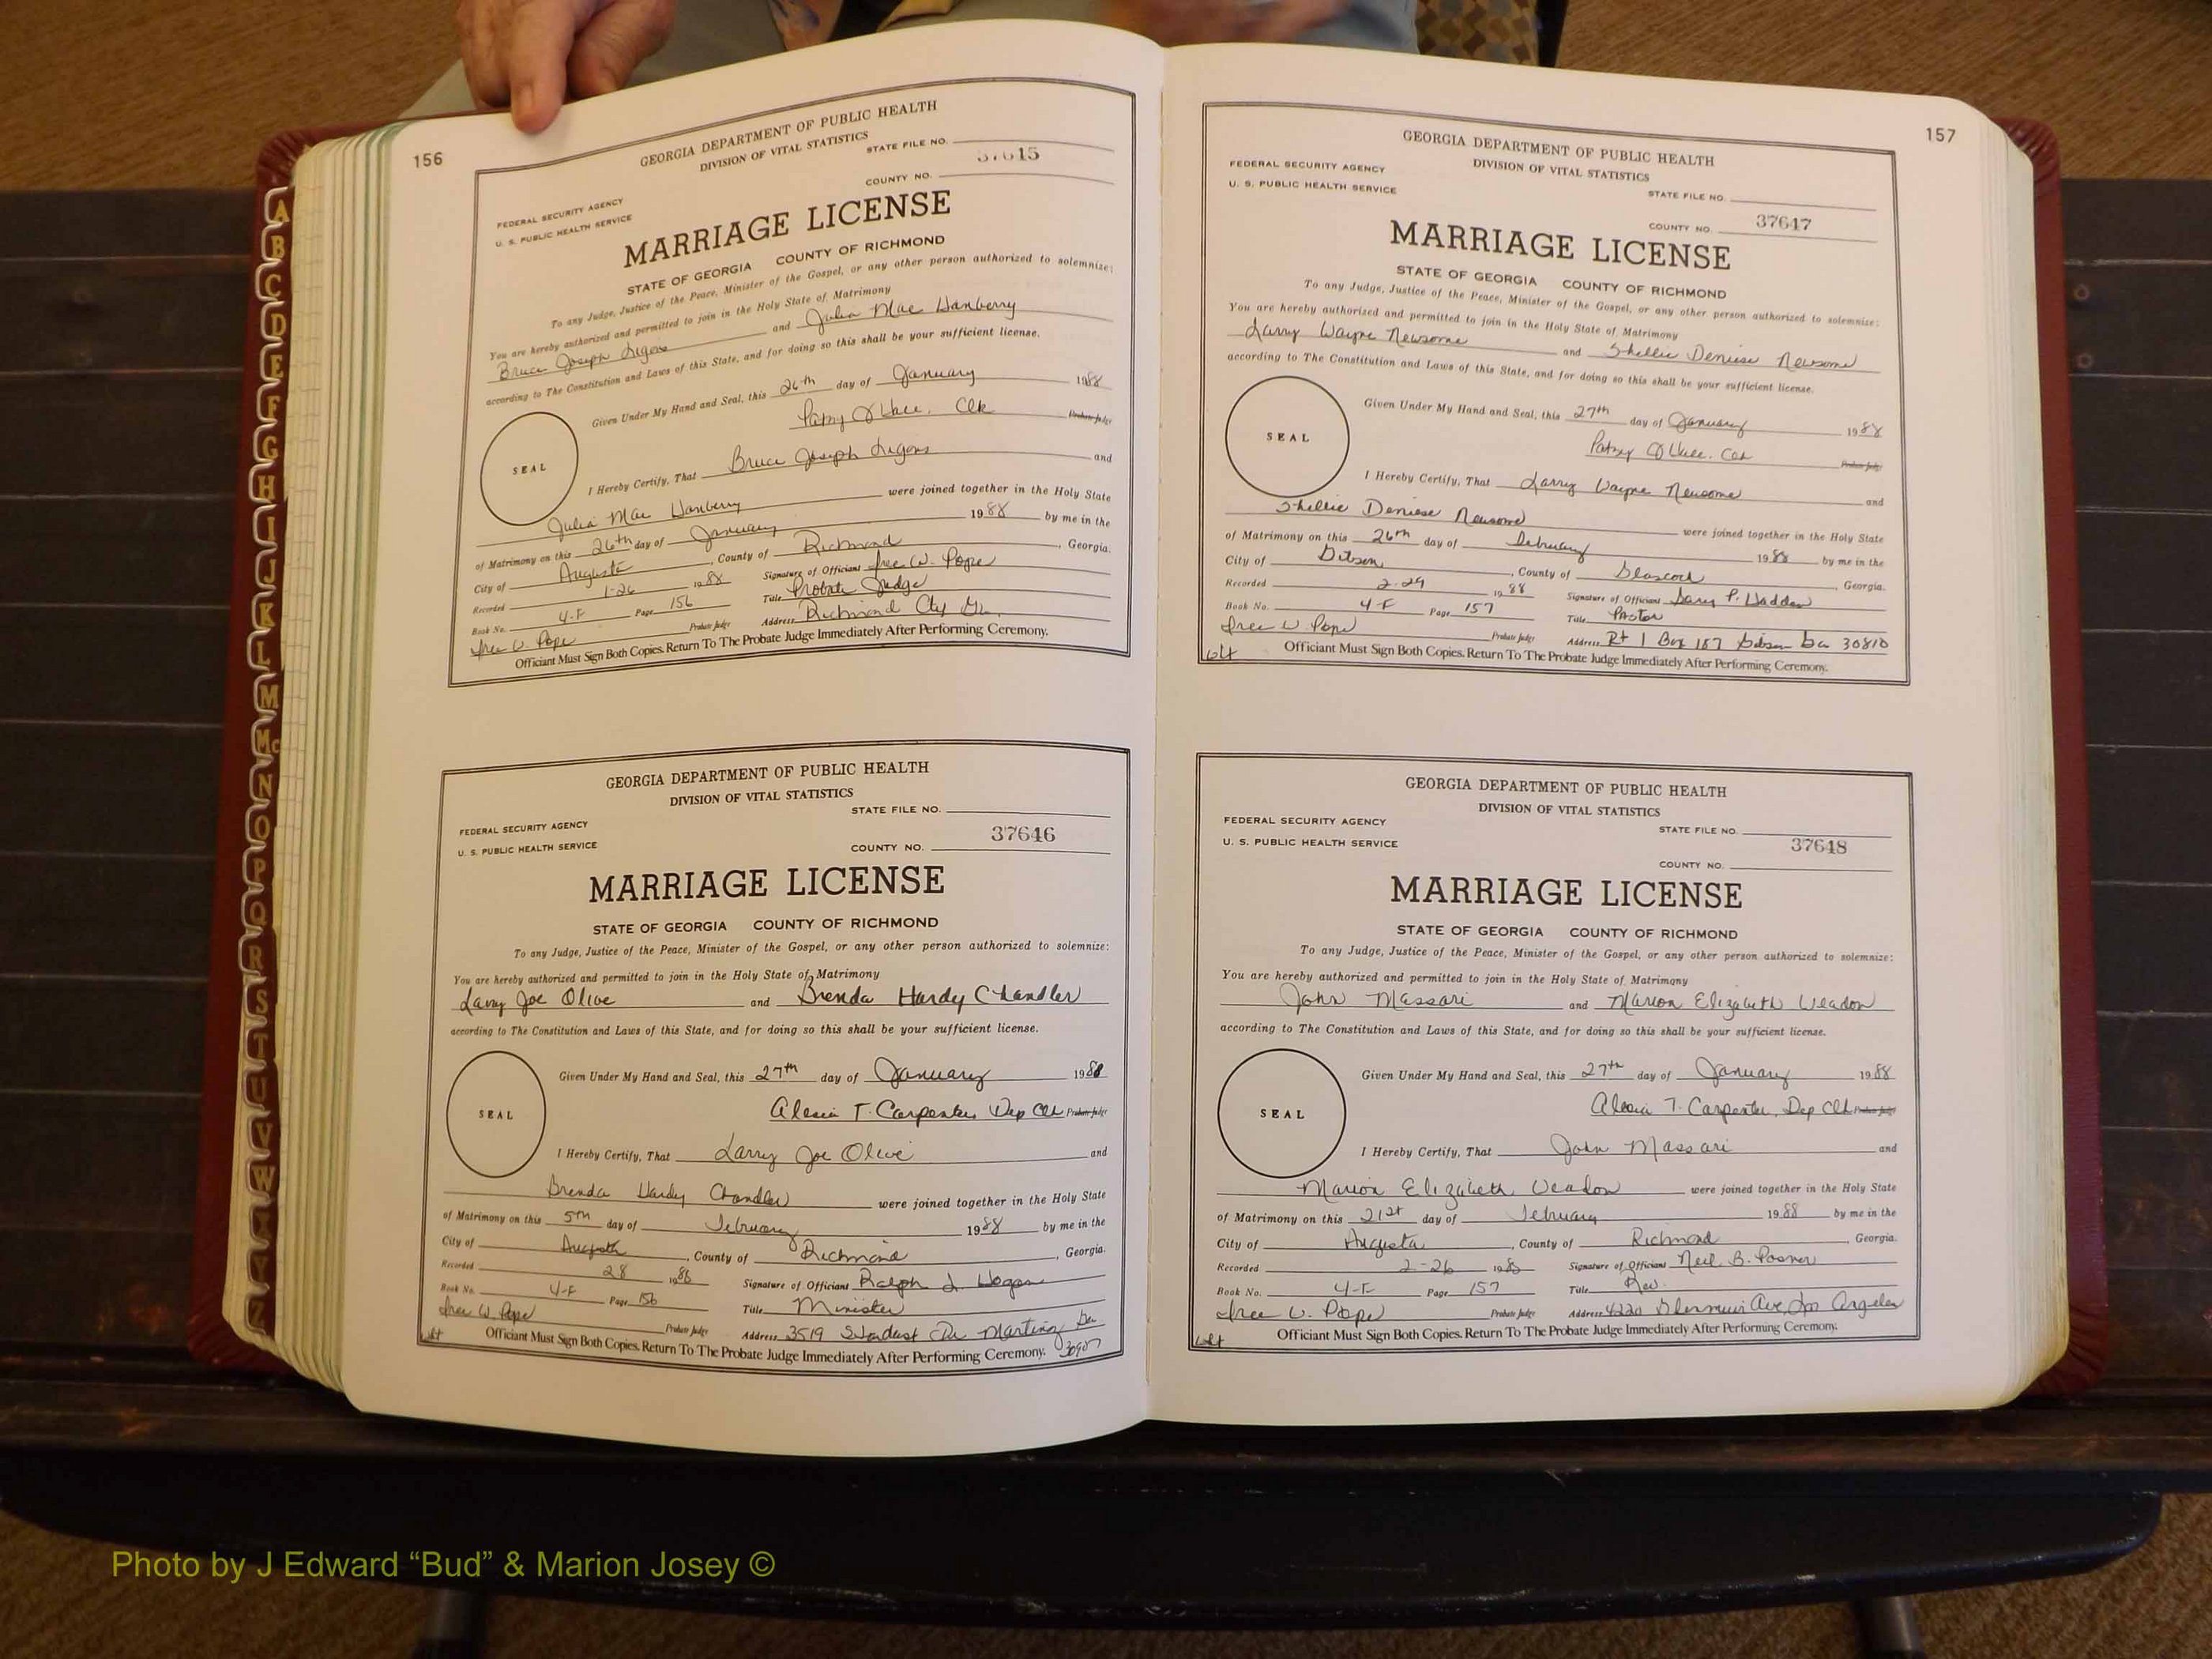 156
GEORGIA DEPARTMENT OF PUBLIC HEALTH
DIVISION OF VITAL STATISTICS
STATE FILE NO.
37645
COUNTY NO.
FEDERAL SECURITY AGENCY
U. S. PUBLIC HEALTH SERVICE
MARRIAGE LICENSE
STATE OF GEORGIA COUNTY OF RICHMOND
To any Judge, Justice of the Peace, Minister of the Gospel, or any other person authorized to solemnize:
You are hereby authorized and permitted to join in the Holy State of Matrimony
Bruce Joseph Ligons and Julia Mae Hanberry
according to The Constitution and Laws of this State, and for doing so this shall be your sufficient license.
Given Under My Hand and Seal, this 26th day of January 1988
Patsy Clk Probate Judge
SEAL
I Hereby Certify, That Bruce Joseph Ligons and
Julia Mae Hanberry were joined together in the Holy State
of Matrimony on this 26th day of January 1988 by me in the
City of Augusta, County of Richmond, Georgia.
Recorded 1-26 1988 Signature of Officiant W. Pope
Book No. 4-F Page 156 Title Probate Judge
W. Pope Probate Judge Address Richmond Cty Ga.
Officiant Must Sign Both Copies. Return To The Probate Judge Immediately After Performing Ceremony.
GEORGIA DEPARTMENT OF PUBLIC HEALTH
DIVISION OF VITAL STATISTICS
STATE FILE NO.
37646
COUNTY NO.
FEDERAL SECURITY AGENCY
U. S. PUBLIC HEALTH SERVICE
MARRIAGE LICENSE
STATE OF GEORGIA COUNTY OF RICHMOND
To any Judge, Justice of the Peace, Minister of the Gospel, or any other person authorized to solemnize:
You are hereby authorized and permitted to join in the Holy State of Matrimony
Larry Joe Olive and Brenda Hardy Chandler
according to The Constitution and Laws of this State, and for doing so this shall be your sufficient license.
Given Under My Hand and Seal, this 27th day of January 1988
Alesia T. Carpenter, Dep Clk Probate Judge
SEAL
I Hereby Certify, That Larry Joe Olive and
Brenda Hardy Chandler were joined together in the Holy State
of Matrimony on this 5th day of February 1988 by me in the
City of Augusta, County of Richmond, Georgia.
Recorded 28 1988 Signature of Officiant Ralph J. Hogan
Book No. 4-F Page 156 Title Minister
W. Pope Probate Judge Address 3519 Stardust Dr Martinez Ga
30907
Officiant Must Sign Both Copies. Return To The Probate Judge Immediately After Performing Ceremony.
157
GEORGIA DEPARTMENT OF PUBLIC HEALTH
DIVISION OF VITAL STATISTICS
FEDERAL SECURITY AGENCY
U. S. PUBLIC HEALTH SERVICE
STATE FILE NO.
COUNTY NO. 37647
MARRIAGE LICENSE
STATE OF GEORGIA COUNTY OF RICHMOND
To any Judge, Justice of the Peace, Minister of the Gospel, or any other person authorized to solemnize:
You are hereby authorized and permitted to join in the Holy State of Matrimony
Larry Wayne Newsome and Shellie Deniese Newsome
according to The Constitution and Laws of this State, and for doing so this shall be your sufficient license.
Given Under My Hand and Seal, this 27th day of January 1988
Patsy Clk Probate Judge
SEAL
I Hereby Certify, That Larry Wayne Newsome and
Shellie Deniese Newsome were joined together in the Holy State
of Matrimony on this 26th day of February 1988 by me in the
City of Gibson, County of Glascock, Georgia.
Recorded 2-29 1988 Signature of Officiant Gary P. Hadden
Book No. 4-F Page 157 Title Pastor
W Pope Probate Judge Address Rt 1 Box 187 Gibson Ga 30810
Officiant Must Sign Both Copies. Return To The Probate Judge Immediately After Performing Ceremony.
GEORGIA DEPARTMENT OF PUBLIC HEALTH
DIVISION OF VITAL STATISTICS
FEDERAL SECURITY AGENCY
U. S. PUBLIC HEALTH SERVICE
STATE FILE NO.
37648
COUNTY NO.
MARRIAGE LICENSE
STATE OF GEORGIA COUNTY OF RICHMOND
To any Judge, Justice of the Peace, Minister of the Gospel, or any other person authorized to solemnize:
You are hereby authorized and permitted to join in the Holy State of Matrimony
John Massari and Marion Elizabeth Veadon
according to The Constitution and Laws of this State, and for doing so this shall be your sufficient license.
Given Under My Hand and Seal, this 27th day of January 1988
Alesia T. Carpenter, Dep Clk Probate Judge
SEAL
I Hereby Certify, That John Massari and
Marion Elizabeth Veadon were joined together in the Holy State
of Matrimony on this 21st day of February 1988 by me in the
City of Augusta, County of Richmond, Georgia.
Recorded 2-26 1988 Signature of Officiant Neil B. Posner
Book No. 4-F Page 157 Title Rev.
W. Pope Probate Judge Address 4220 Ave Los Angeles
Officiant Must Sign Both Copies. Return To The Probate Judge Immediately After Performing Ceremony.
A
B
C
D
E
F
G
H
I
J
K
L
M
Mc
N
O
P
Q
R
S
T
U
V
W
X
Y
Z
Photo by J Edward “Bud” & Marion Josey ©